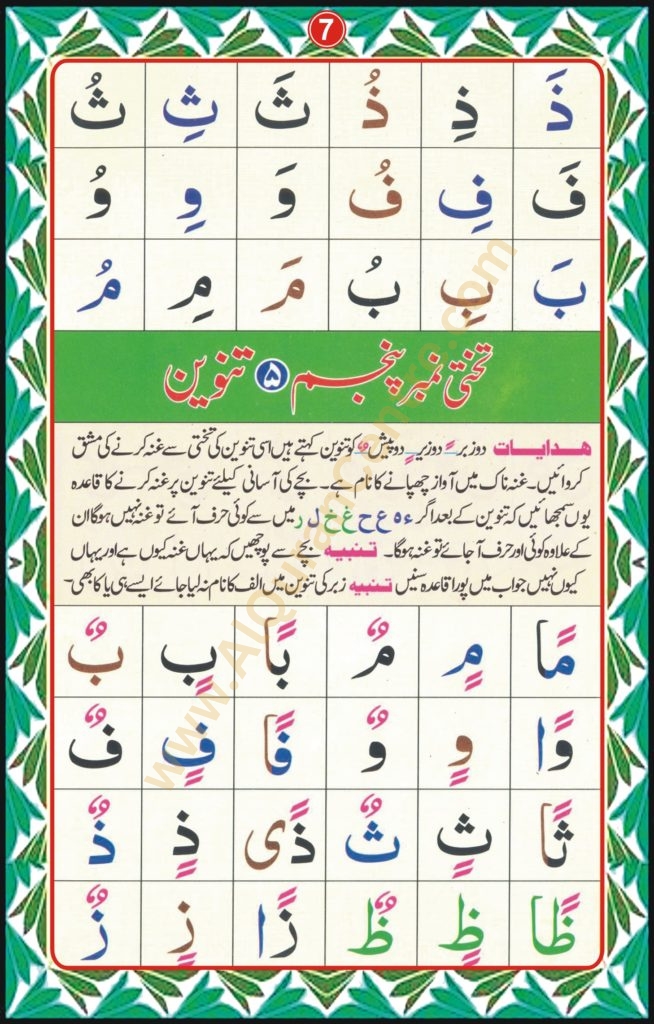 7
ذَ ذِ ذُ ثَ ثِ ثُ
فَ فِ فُ وَ وِ وُ
بَ بِ بُ مَ مِ مُ
تختی نمبر پنجم ۵ تنوین
ھدایات دوزبر ـً دوزیر ـٍ دوپیش ـٌ کو تنوین کہتے ہیں اسی تنوین کی تختی سے غنہ کرنے کی مشق
کروائیں۔ غنہ ناک میں آواز چھپانے کا نام ہے۔ بچے کی آسانی کیلئے تنوین پر غنہ کرنے کا قاعدہ
یوں سمجھائیں کہ تنوین کے بعد اگر ء ہ ع ح غ خ ل ر میں سے کوئی حرف آئے تو غنہ نہیں ہوگا ان
کے علاوہ کوئی اور حرف آجائے تو غنہ ہوگا۔ تنبیہ بچے سے پوچھیں کہ یہاں غنہ کیوں ہے اور یہاں
کیوں نہیں جواب میں پورا قاعدہ سنیں تنبیہ زبر کی تنوین میں الف کا نام نہ لیا جائے ایسے ہی یا کا بھی۔
مًا مٍ مٌ بًا بٍ بٌ
وًا وٍ وٌ فًا فٍ فٌ
ثًا ثٍ ثٌ ذًی ذٍ ذٌ
ظًا ظٍ ظٌ زًا زٍ زٌ
www.AlQuranCenter.com